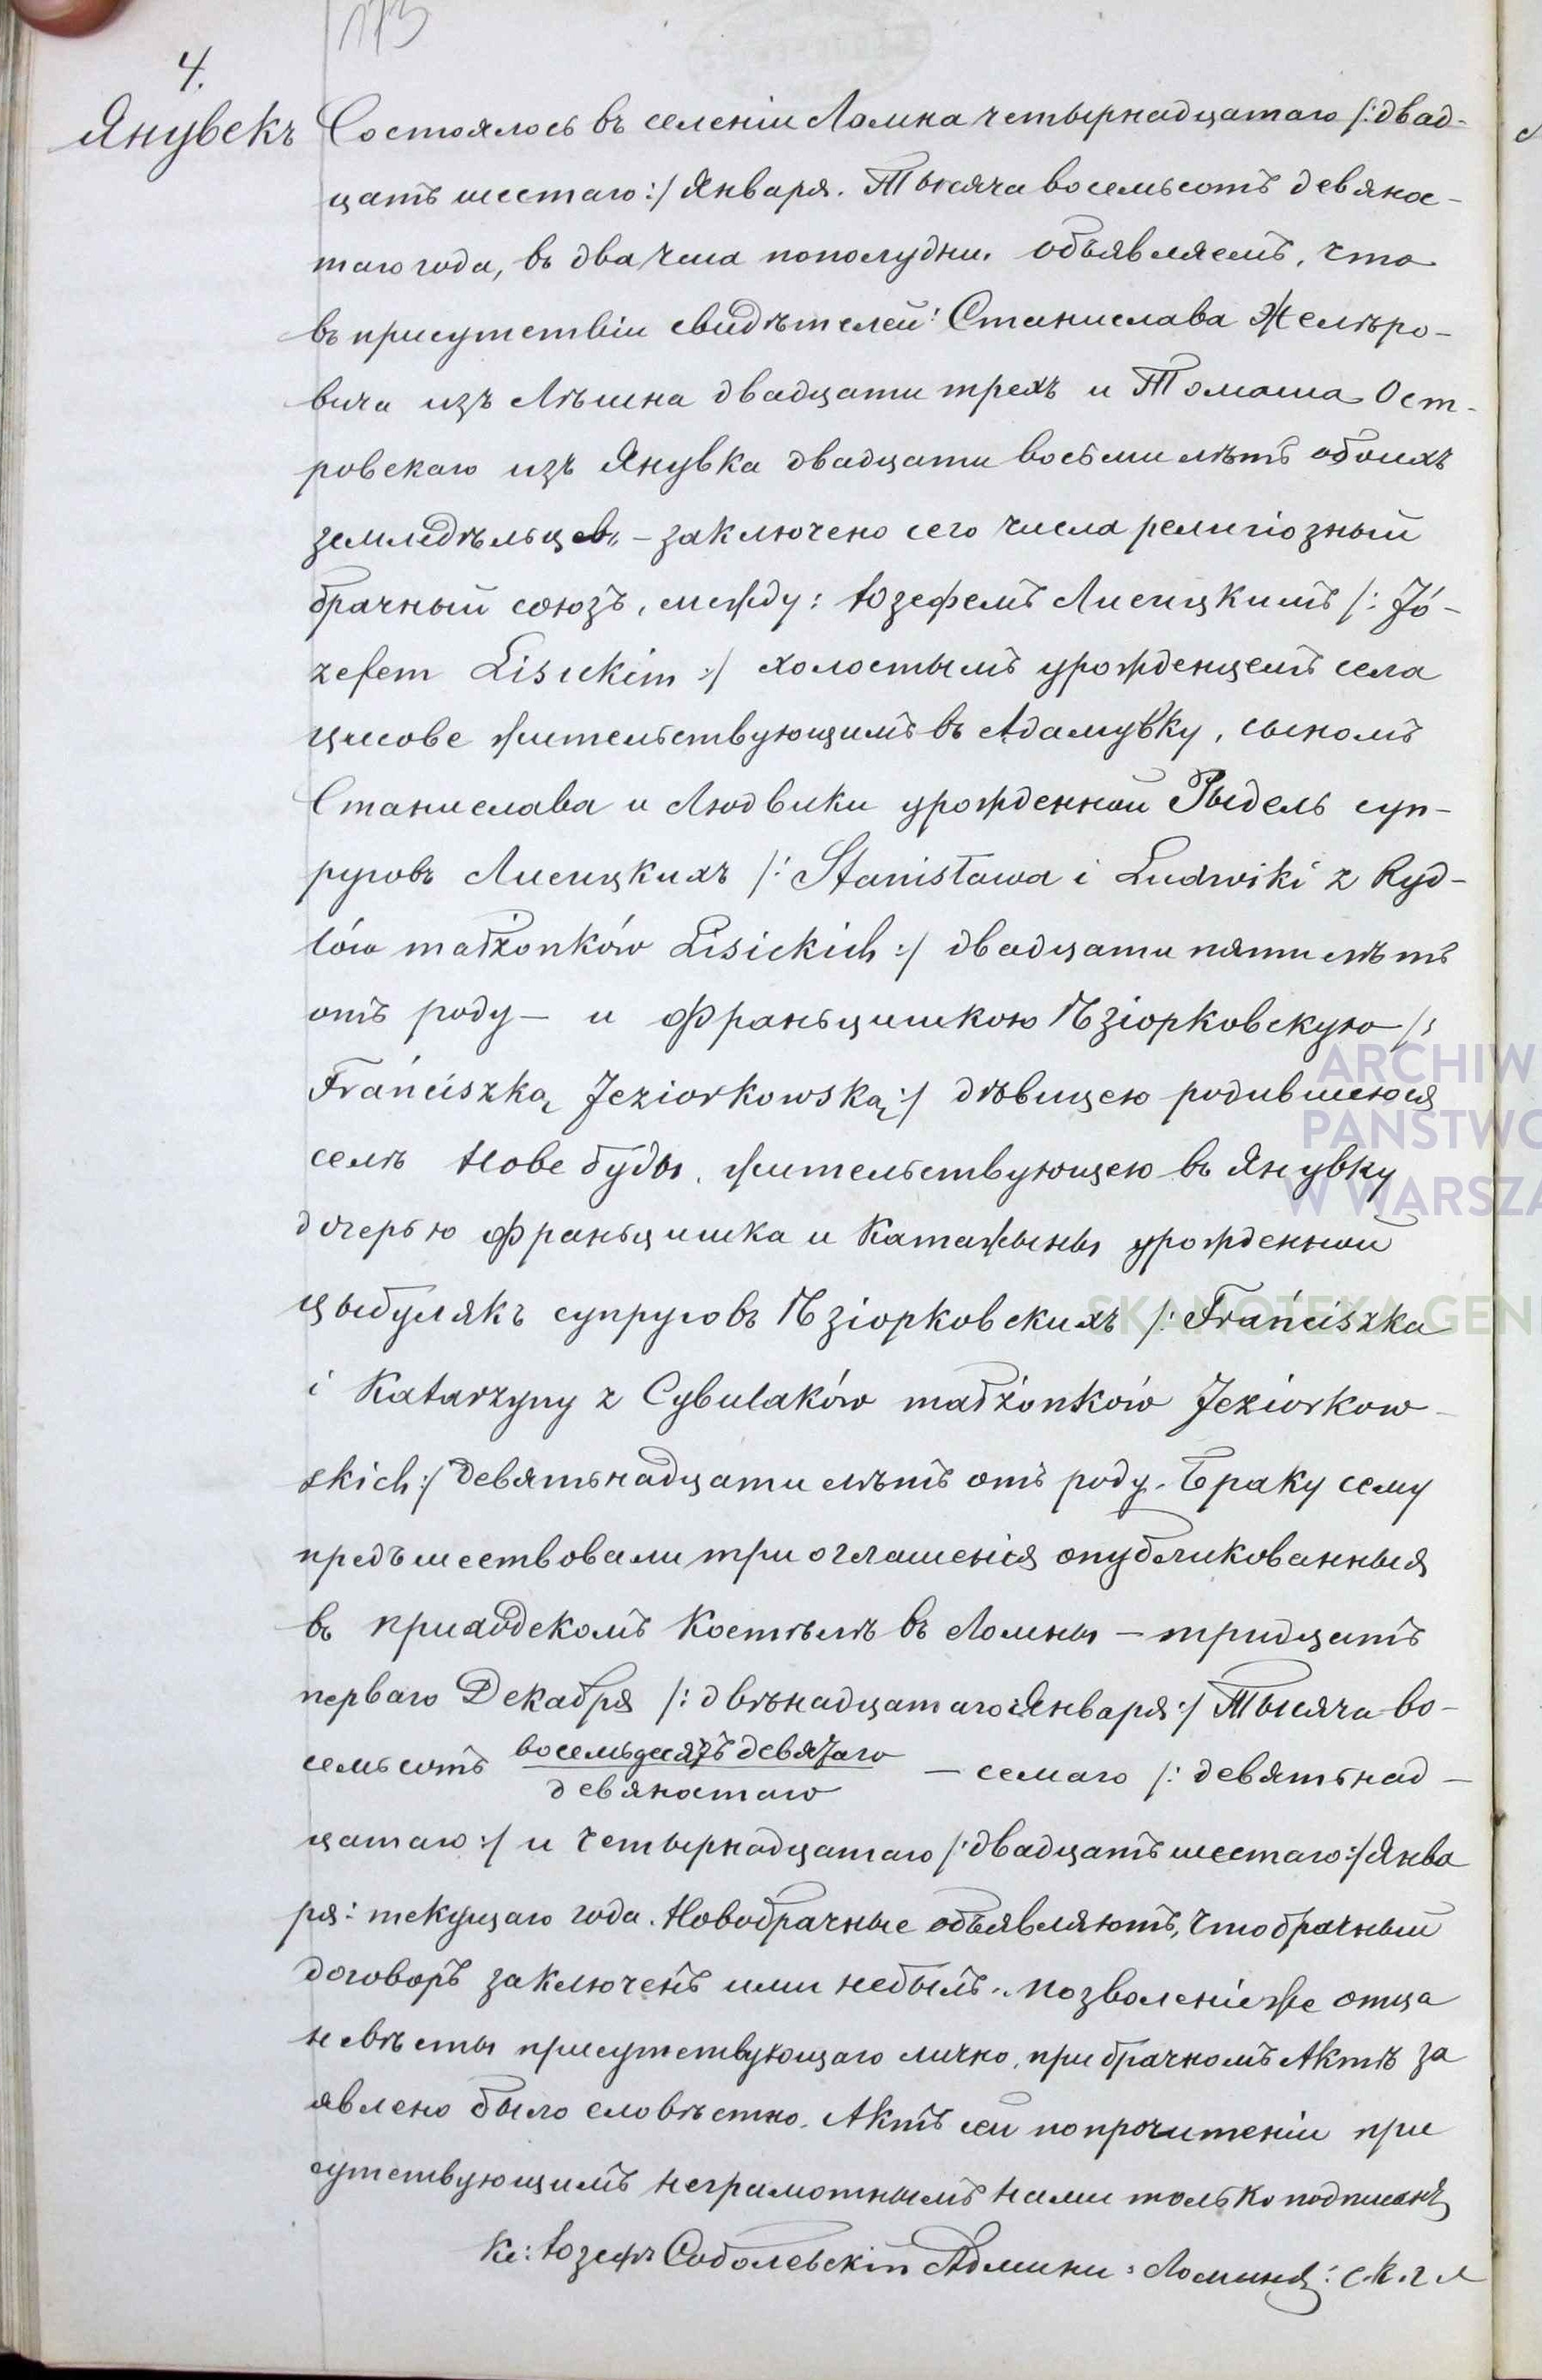 173
4.
Янувекъ
Состоялось въ селеніи Ломна четырнадцатаго /:двад-
цать шестаго:/ Января. Тысяча восемьсотъ девянос-
таго года, въ два часа пополудни. Объявляемъ, что
въ присутствіи свидѣтелей: Станислава Желѣро-
вича изъ Лѣшна двадцати трехъ и Томаша Ост-
ровскаго изъ Янувка двадцати восьми лѣтъ обоихъ
земледѣльцевъ – заключено сего числа религіозный
брачный союзъ, между: Юзефемъ Лисицкимъ /: Jó-
zefem Lisickim :/ холостымъ урожденцемъ села
Цисове жительствующимъ въ Адамувку, сыномъ
Станислава и Людвики урожденной Рыдель суп-
руговъ Лисицкихъ /: Stanisława i Ludwiki z Ryd-
lów małżonków Lisickich :/ двадцати пяти лѣтъ
отъ роду – и Франьцишкою Ѣзіорковскую /:
Frańciszką Jeziorkowską :/ дѣвицею родившеюся
селѣ Нове буды, жительствующею въ Янувку
дочерью Франьцишка и Катажыны урожденной
Цыбулякъ супруговъ Ѣзіорковскихъ /: Frańciszka
i Katarzyny z Cybulaków małżonków Jeziorkow-
skich :/ девятьнадцати лѣтъ отъ роду. Браку сему
предъшествовали три оглашенія опубликованныя
въ приходскомъ Костѣлѣ въ Ломны – тридцать
перваго Декабря /: двѣнадцатаго Января :/ Тысяча во-
семьсотъ восемьдесятъ девятаго – семаго /: девятьнад-
девяностаго
цатаго :/ и четырнадцатаго /:двадцать шестаго:/ Янва
ря: текущаго года. Новобрачные объявляютъ, что брачный
договоръ заключенъ ими небылъ. Позволеніе же отца
невѣсты присутствующаго лично, при брачномъ Актѣ за
явлено было словѣстно. Актъ сей по прочитеніи при
сутствующимъ неграмотнымъ нами только подписанъ
Кс: Юзефъ Соболевскій Админи: Ломня: с.к.г.л
ARCHIW
PAŃSTWO
W WARSZA
SKANOTEKA GEN